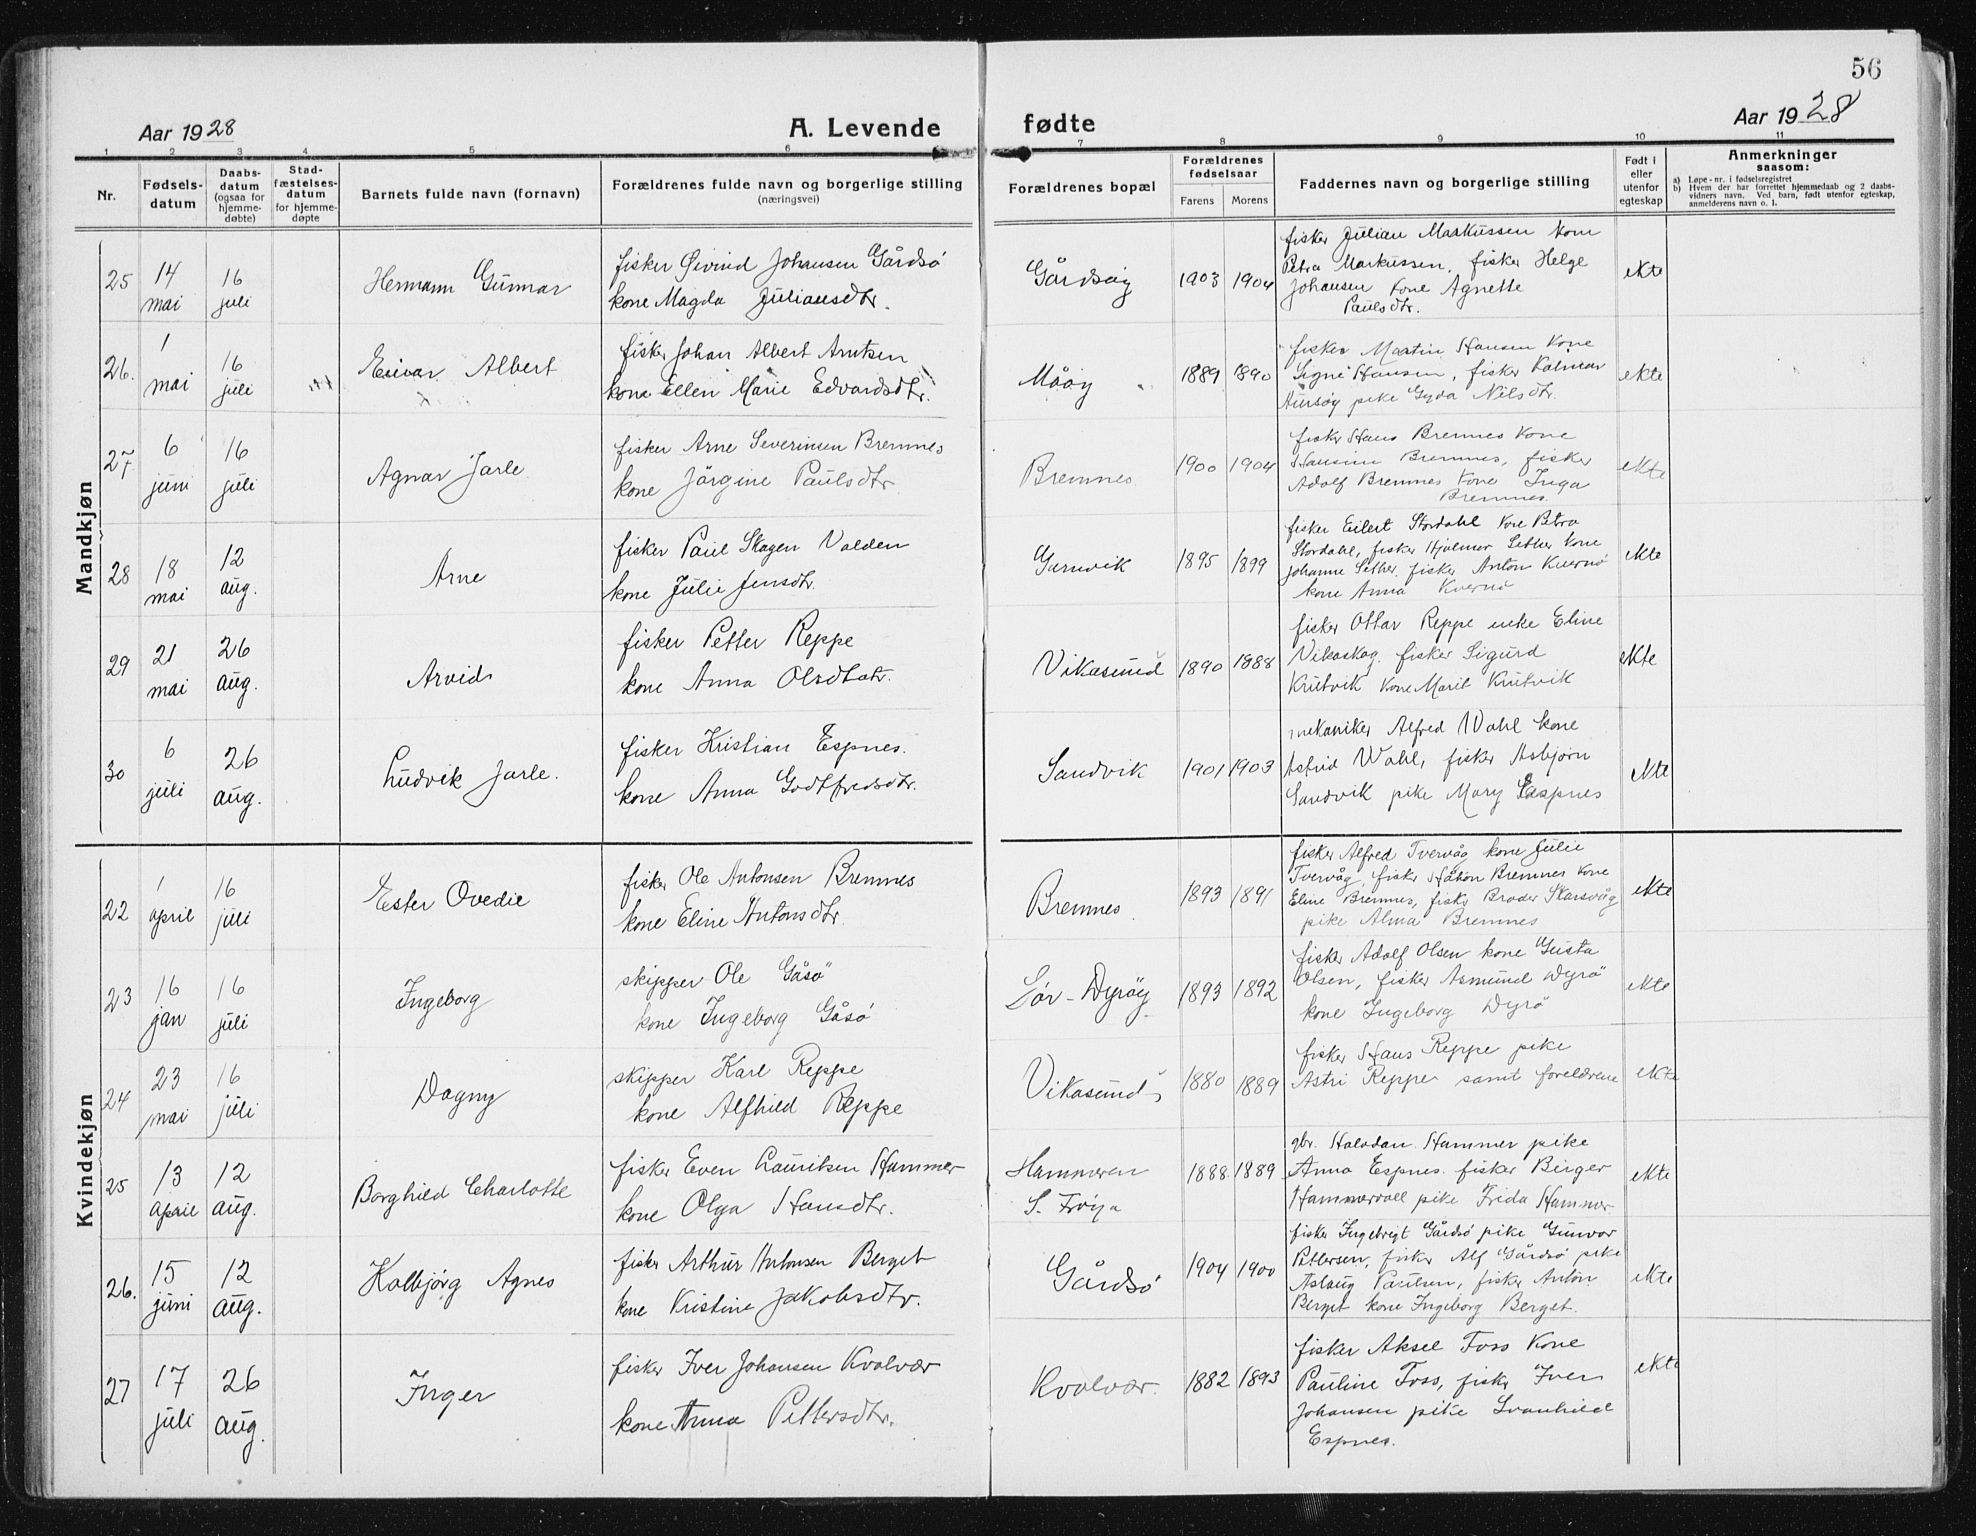 56
Aar 1928
A. Levende fødte
Aar 1928
1 2 3 4 5 6 7 8 9 10 11
Nr.
Fødsels-
datum
Daabs-
datum
(ogsaa for
hjemme-
døbte)
Stad-
fæstelses-
datum
for hjemme-
døpte
Barnets fulde navn (fornavn)
Forældrenes fulde navn og borgerlige stilling
(næringsvei)
Forældrenes bopæl
Forældrenes
fødselsaar
Farens Morens
Faddernes navn og borgerlige stilling
Født i
eller
utenfor
egteskap
Anmerkninger
saasom:
a) Løpe-nr. i fødselsregistret
b) Hvem der har forrettet hjemmedaab og 2 daabs-
vidners navn. Ved barn, født utenfor egteskap,
anmelderens navn o. l.
Mandkjøn
25
14
mai
16
juli
Hermann Gunnar
fisker Øivind Johansen Gårdsö
kone Magda Juliansdtr.
Gårdsöy
1903 1904
fisker Julian Markussen kone
Petra Markussen, fisker Helge
Johansen kone Agnette
Paulsdtr.
ekte
26.
1
mai
16
juli
Einar Albert
fisker Johan Albert Arntsen
kone Ellen Marie Edvardsdtr.
Måöy
1889 1890
fisker Martin Hansen kone
Signe Hansen, fisker Kalmar
Aursöy pike Gyda Nilsdtr.
ekte
27
6
juni
16
juli
Agnar Jarle
fisker Arne Severinsen Bremnes
kone Jörgine Paulsdtr
Bremnes
1900 1904
fisker Hans Bremnes kone
Hansine Bremnes, fisker
Adolf Bremnes kone Inga
Bremnes.
ekte
28
18
mai
12
aug.
Arne
fisker Paul Skagen Valden
kone Julie Jensdtr.
Garnvik
1895 1899
fisker Eilert Stordahl kone Petra
Stordahl, fisker Hjalmar Sether kone
Johanne Sether, fisker Anton Kvernö
kone Anna Kvernö
ekte
29
21
mai
26
aug.
Arvid
fisker Petter Reppe
kone Anna Olsdtatr.
Vikasund
1890 1888
fisker Ottar Reppe enke Eline
Vikaskag. fisker Sigurd
Krutvik kone Marit Krutvik
ekte
30
6
juli
26
aug.
Ludvik Jarle.
fisker Kristian Espnes.
kone Anna Godtfredsdtr.
Sandvik
1901 1903
mekaniker Alfred Wahl kone
Astrid Wahl, fisker Asbjørn
Sandvik pike Mary Espnes
ekte
Kvindekjøn
22
1
april
16
juli
Ester Ovedie
fisker Ole Antonsen Bremnes
kone Eline Antonsdtr.
Bremnes
1893 1891
fisker Alfred Tvervåg kone Julie
Tvervåg, fisker Håkon Bremnes kone
Eline Bremnes, fisker Broder Skarsvåg
pike Alma Bremnes
ekte
23
16
jan
16
juli
Ingeborg
skipper Ole Gåsö
kone Ingeborg Gåsö
Sör-Dyröy
1893 1892
fisker Adolf Olsen kone Gusta
Olsen, fisker Asmund Dyrö
kone Ingeborg Dyrö
ekte
24
23
mai
16
juli
Dagny
skipper Karl Reppe
kone Alfhild Reppe
Vikasund
1880 1889
fisker Hans Reppe pike
Astri Reppe samt foreldrene
ekte
25
13
april
12
aug.
Borghild Charlotte
fisker Even Lauritsen Hammer
kone Olga Hansdtr.
Hammeren
S. Fröya
1888 1889
gbr. Halvdan Hammer pike
Anna Espnes. fisker Birger
Hammervoll pike Frida Hammer
ekte
26.
15
juni
12
aug.
Kolbjörg Agnes
fisker Arthur Antonsen Berget
kone Kristine Jakobsdtr.
Gårdsö
1904 1900
fisker Ingebrigt Gårdsö pike Gunvor
Pettersen, fisker Alf Gårdsö pike
Aslaug Paulsen, fisker Anton
Berget kone Ingeborg Berget.
ekte
27
17
juli
26
aug.
Inger
fisker Iver Johansen Kvalvær
kone Anna Pettersdtr.
Kvalvær.
1882 1893
fisker Aksel Foss kone
Pauline Foss, fisker Iver
Johansen pike Svanhild
Espnes.
ekte